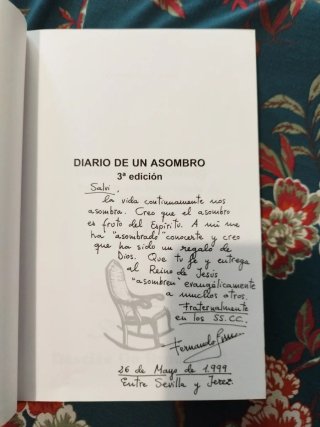 DIARIO DE UN ASOMBRO
3ª edición
Salvi,
la vida continuamente nos
asombra. Creo que el asombro
es fruto del Espíritu. A mi me
ha "asombrado" conocerte y creo
que ha sido un regalo de
Dios. Que tu fe y entrega
al Reino de Jesús
"asombren" evangélicamente
a muchos otros.
Fraternalmente
en los SS.CC.
Fernando
26 de Mayo de 1.999
Entre Sevilla y Jerez.